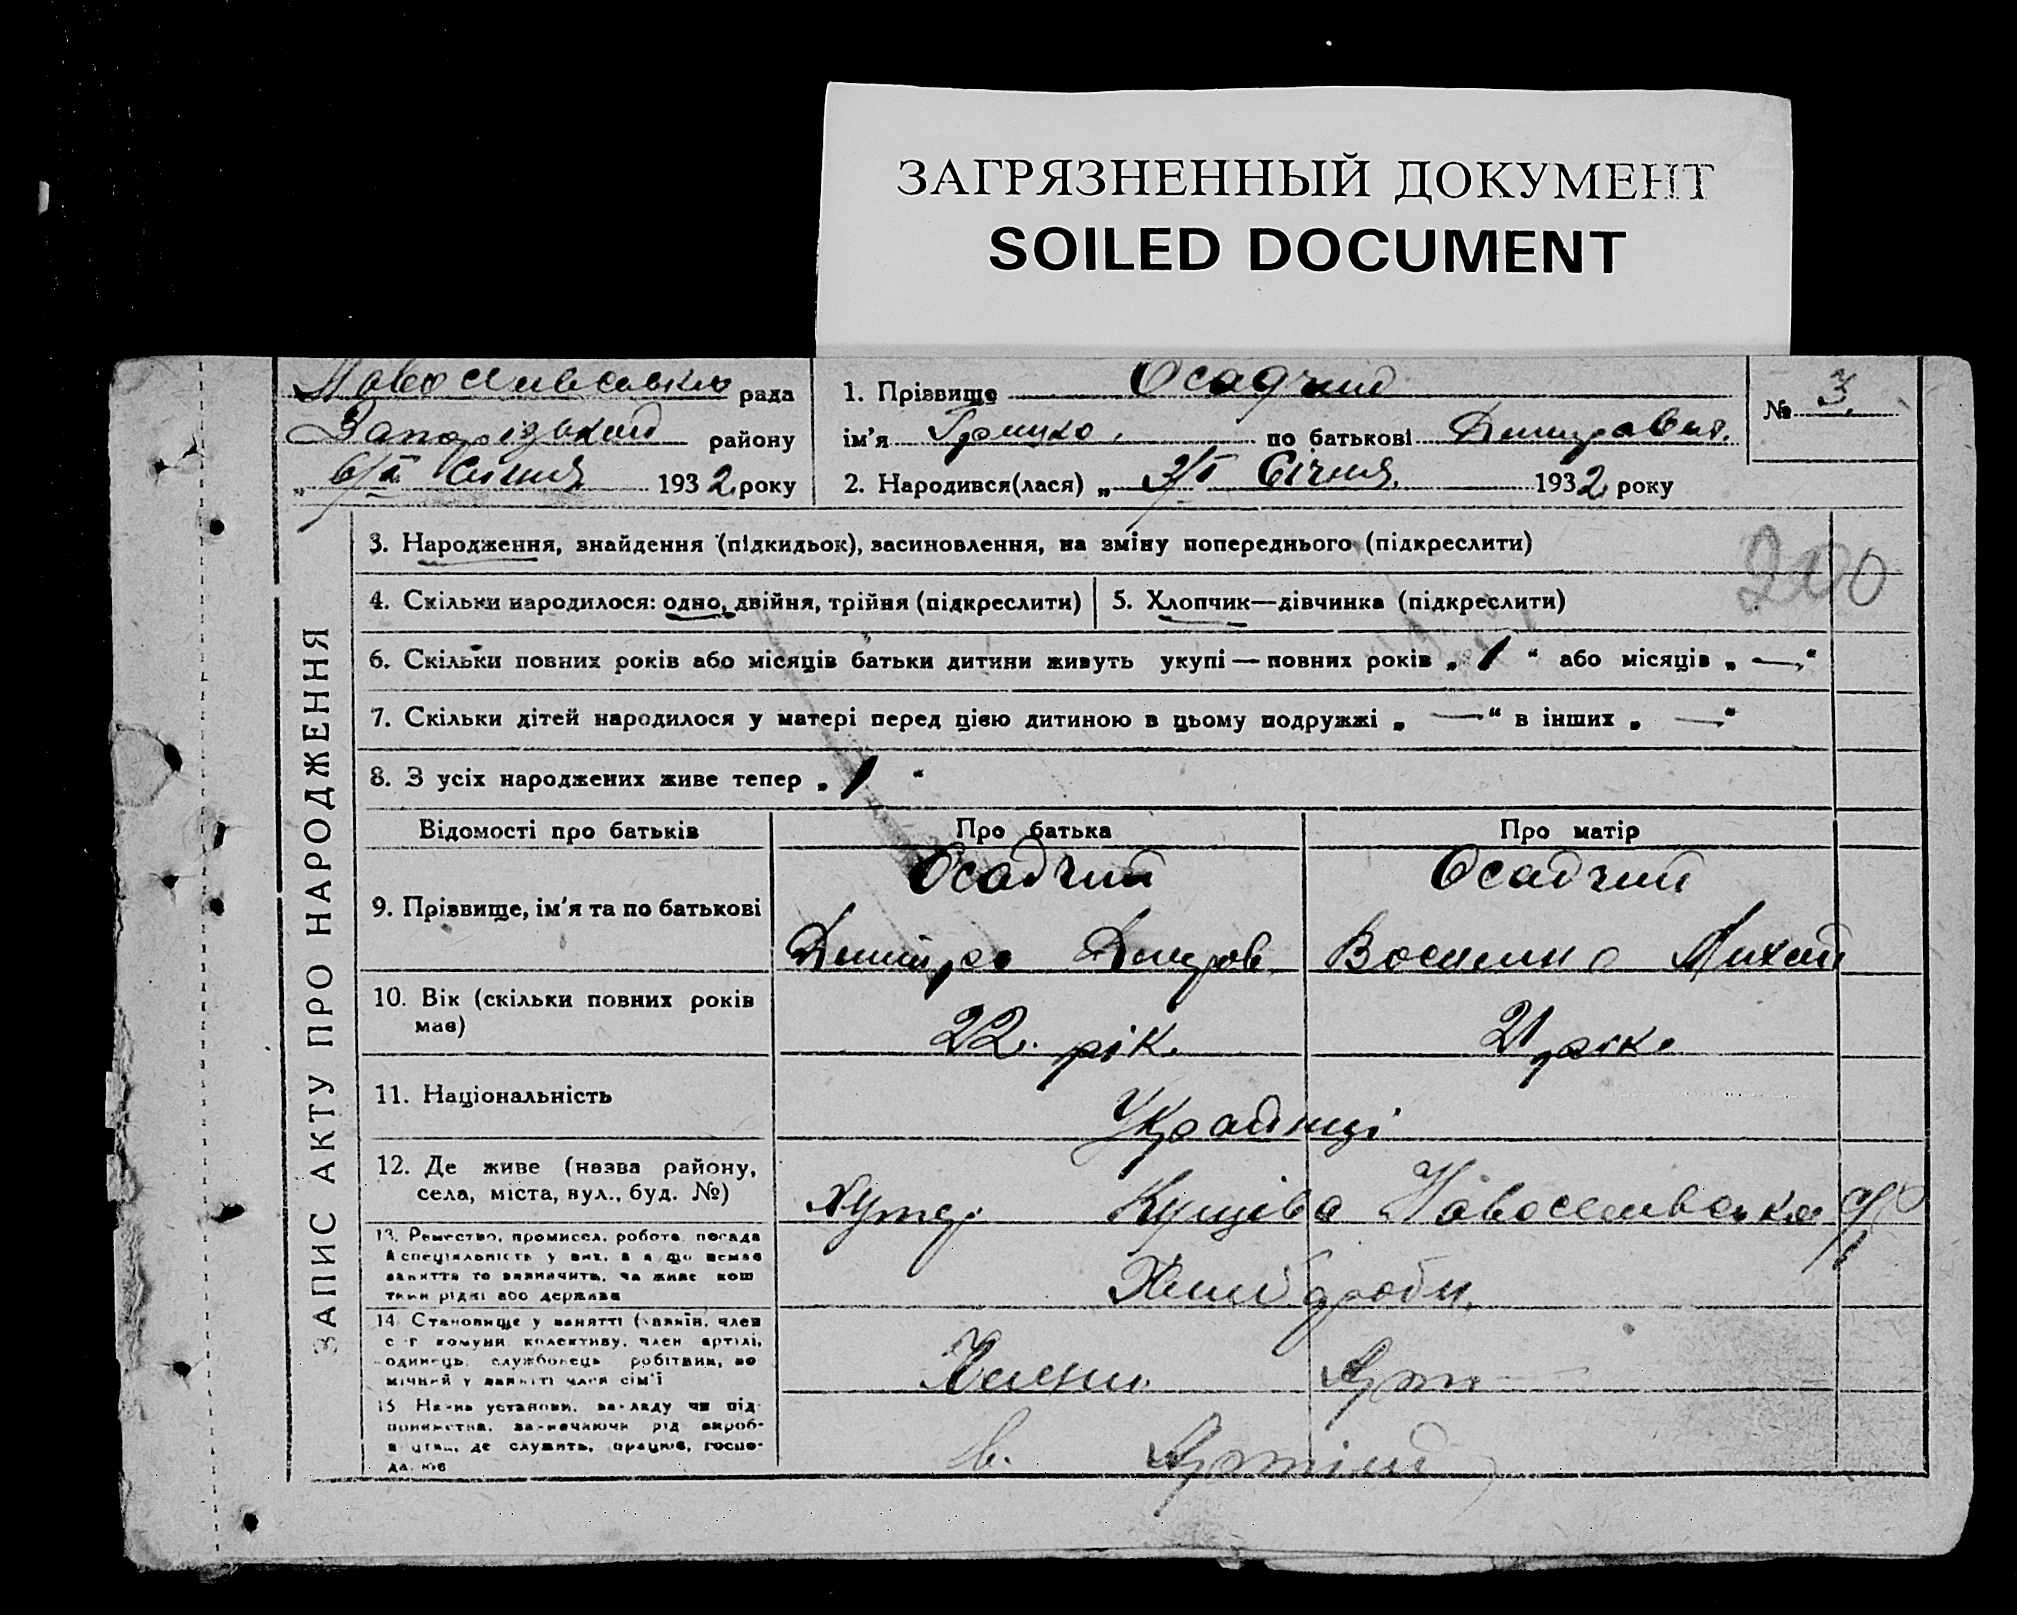 ЗАГРЯЗНЕННЫЙ ДОКУМЕНТ
SOILED DOCUMENT
рада
Запорізький району
„ 6/I Січня 1932 року
1. Прізвище Осадчий
ім'я Грицко, по батькові
2. Народився(лася) „ 3/I Січня 1932 року
№ 3.
200
ЗАПИС АКТУ ПРО НАРОДЖЕННЯ
3. Народження, знайдення (підкидьок), засиновлення, на зміну попереднього (підкреслити)
4. Скільки народилося: одно, двійня, трійня (підкреслити)
5. Хлопчик—дівчинка (підкреслити)
6. Скільки повних років або місяців батьки дитини живуть укупі — повних років „ 1 “ або місяців „ — “
7. Скільки дітей народилося у матері перед цією дитиною в цьому подружжі „ — “ в інших „ — “
8. З усіх народжених живе тепер „ 1 “
Відомості про батьків
Про батька
Про матір
9. Прізвище, ім'я та по батькові
Осадчий
Дмитро
Осадчий
10. Вік (скільки повних років
має)
22. рік.
21 рік.
11. Національність
Українці
12. Де живе (назва району,
села, міста, вул., буд. №)
Хутор Кущіва
13. Ремество, промисел, робота, посада
й спеціяльність у них, а якщо немає
заняття то зазначити, чи живе кош
тами рідні або держава
Хлібороби.
14. Становище у занятті (хазяїн, член
с-г комуни колективу, член артілі,
одинець, службовець робітник, по
мічний у занятті член сім'ї
Члени Арт
15 Назва установи, закладу чи під-
приємства, зазначаючи рід вироб-
ництва, де служить, працює, госпо-
дарює
в. Артілі